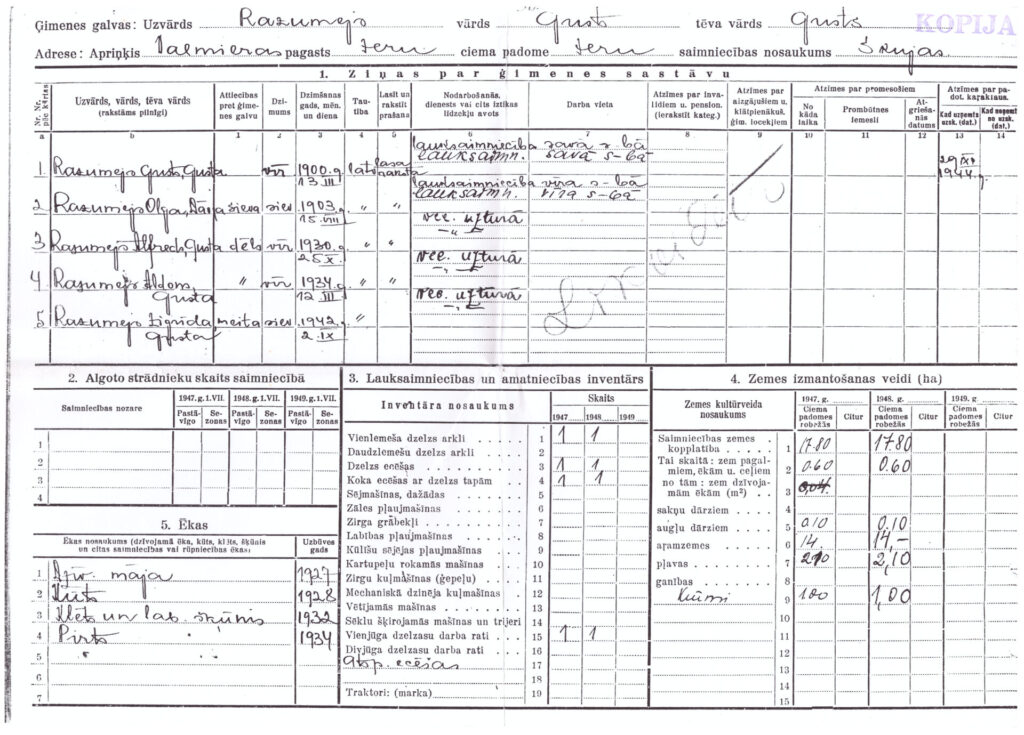 Ģimenes galvas: Uzvārds Razumejs vārds Gusts tēva vārds Gusts
KOPIJA
Adrese: Apriņķis Valmieras pagasts Ieru ciema padome Ieru saimniecības nosaukums Skujas
1. Ziņas par ģimenes sastāvu
Nr. pēc kārtas
Uzvārds, vārds, tēva vārds (rakstāms pilnīgi)
Attiecības pret ģimenes galvu
Dzimums
Dzimšanas gads, mēn. un diena
Tautība
Lasīt un rakstīt prašana
Nodarbošanās, dienests vai cits iztikas līdzekļu avots
Darba vieta
Atzīmes par invalīdiem u. pension. (ierakstīt kateg.)
Atzīmes par aizgājušiem u. klātpienākuš. ģim. locekļiem
Atzīmes par promesošiem
No kāda laika
Prombūtnes iemesli
Atgriešanās datums
Atzīmes par padot. karaklaus.
Kad uzņemts uzsk. (dat.)
Kad noņemt no uzsk. (dat.)
a b 1 2 3 4 5 6 7 8 9 10 11 12 13 14
lauksaimniecība savā s-bā
1 Razumejs Gusts, Gusta vīr 1900.g. latv lasa raksta lauksaimn. savā s-bā 29 XI 1944.g.
13 III lauksaimniecība vīra s-bā
2 Razumejs Olga, sieva siev 1903.g. " " lauksaimn. vīra s-bā
15.VIII vec. uzturā
3 Razumejs Alfreds, Gusta dēls vīr 1930.g. " "
25 X vec. uzturā
4 Razumejs Aldons, Gusta " vīr 1934.g. " "
12 III vec. uzturā
5 Razumejs Zigrīda, Gusta meita siev 1942.g. "
2.IX
2. Algoto strādnieku skaits saimniecībā
Saimniecības nozare
1947. g. 1. VII. 1948. g. 1. VII. 1949. g. 1. VII.
Pastāvīgo Sezonas Pastāvīgo Sezonas Pastāvīgo Sezonas
1
2
3
4
5. Ēkas
Ēkas nosaukums (dzīvojamā ēka, kūts, klēts, šķūnis un citas saimniecības vai rūpniecības ēkas)
Uzbūves gads
1 Dzīv. māja 1927
2 Kūts 1928
3 Klēts un lab. šķūnis 1932
4 Pirts 1934
5
6
7
3. Lauksaimniecības un amatniecības inventārs
Inventāra nosaukums
Skaits
1947 1948 1949
Vienlemeša dzelzs arkli 1 1 1
Daudzlemešu dzelzs arkli 2
Dzelzs ecēšas 3 1 1
Koka ecēšas ar dzelzs tapām 4 1 1
Sējmašīnas, dažādas 5
Zāles pļaujmašīnas 6
Zirga grābekļi 7
Labības pļaujmašīnas 8
Kūlīšu sējējas pļaujmašīnas 9
Kartupeļu rokamās mašīnas 10
Zirgu kuļmašīnas (ģepeļu) 11
Mechaniskā dzinēja kuļmašīnas 12
Vētījamās mašīnas 13
Sēklu šķirojamās mašīnas un trijeri 14
Vienjūga dzelzasu darba rati 15 1 1
Divjūga dzelzasu darba rati 16
Atsp. ecēšas 17
18
Traktori: (marka) 19
4. Zemes izmantošanas veidi (ha)
Zemes kultūrveida nosaukums
1947. g. 1948. g. 1949. g.
Ciema padomes robežās Citur Ciema padomes robežās Citur Ciema padomes robežās Citur
Saimniecības zemes kopplatība 1 17.80 17.80
Tai skaitā: zem pagalmiem, ēkām u. ceļiem 2 0.60 0.60
no tām: zem dzīvojamām ēkām (m²) 3 0,04
sakņu dārziem 4
augļu dārziem 5 0.10 0.10
aramzemes 6 14. 14,-
pļavas 7 2,10 2,10
ganības 8
Krūmi 9 1.00 1,00
10
11
12
13
14
15